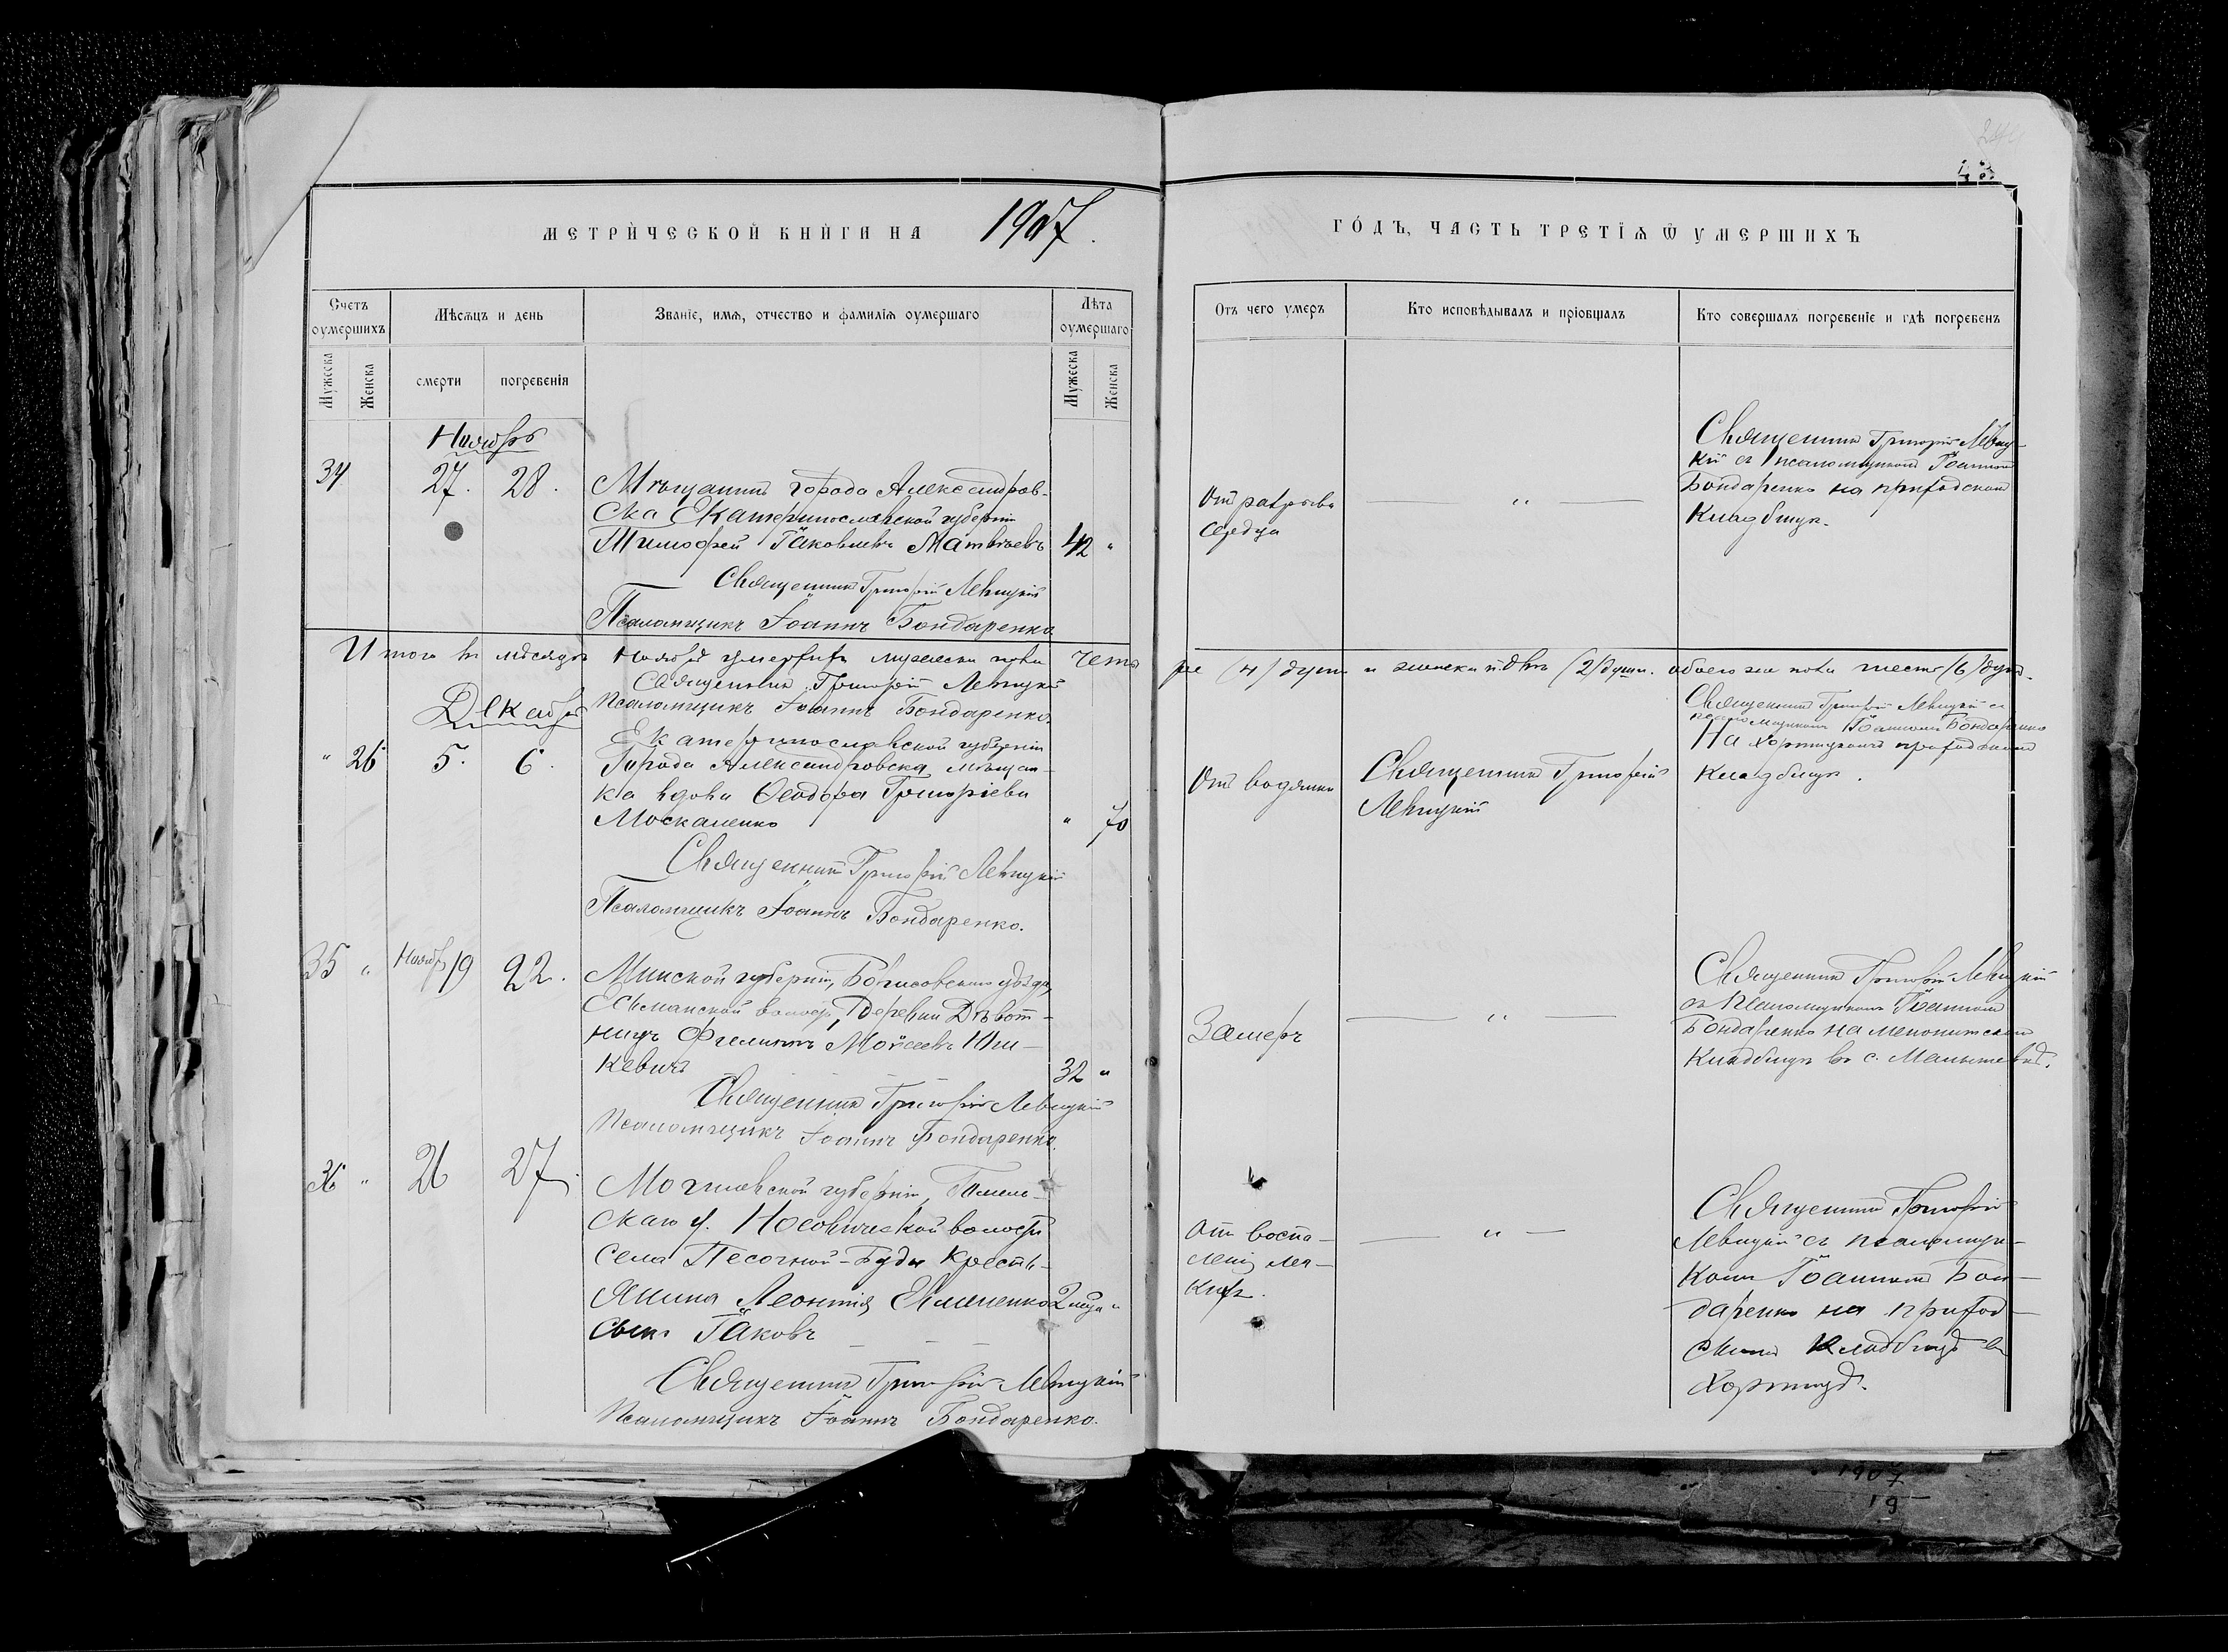 МЕТРИЧЕСКОЙ КНИГИ НА 1907.
Счетъ оумершихъ
Мужеска
Женска
Мѣсяцъ и день
смерти
погребенія
Званіе, имя, отчество и фамилія оумершаго
Лѣта оумершаго
Мужеска
Женска
Ноябрь
34 27. 28.
Мѣщанинъ города Александров-
ска Екатеринославской губерніи
Тимофей Іаковлевъ Матвѣевъ 42 "
Священникъ Григорій Левицкій
Псаломщикъ Іоаннъ Бондаренко
Итого въ мѣсяцѣ Ноябрѣ умершихъ мужеска пола четы
Священникъ Григорій Левицкій
Псаломщикъ Іоаннъ Бондаренко.
Декабрь
" 26 5. 6.
Екатеринославской губерніи
Города Александровска мѣщан-
ка вдова Ѳеодора Григоріева
Москаленко " 70
Священникъ Григорій Левицкій
Псаломщикъ Іоаннъ Бондаренко.
35 " Ноябр 19 22.
Минской губерніи, Борисовскаго уѣзда,
волости, деревни
Моисеевъ Юш-
кевичъ 32 "
Священникъ Григорій Левицкій
Псаломщикъ Іоаннъ Бондаренко.
36 " 26 27.
Могилевской губерніи, Гомель-
скаго у. Носовической волости
села Песочной-Буды крестья-
нина Леонтія Клименко 2 мѣс. "
сынъ Іаковъ
Священникъ Григорій Левицкій
Псаломщикъ Іоаннъ Бондаренко.
43
ГОДЪ, ЧАСТЬ ТРЕТІЯ Ѿ УМЕРШИХЪ
Отъ чего умеръ
Кто исповѣдывалъ и пріобщалъ
Кто совершалъ погребеніе и гдѣ погребенъ
От разрыва
сердца
"
Священникъ Григорій Левиц-
кій съ псаломщикомъ Іоанномъ
Бондаренко на приходскомъ
кладбищѣ.
ре (4) душ и женска п. двѣ (2) души. обоего же пола шесть (6) душ.
От водянки
Священникъ Григорій
Левицкій
Священникъ Григорій Левицкій съ
псаломщикомъ Іоанномъ Бондаренко
На Хортицкомъ приходскомъ
кладбищѣ.
Замерзъ
"
Священникъ Григорій Левицкій
съ псаломщикомъ Іоанномъ
Бондаренко на менонитском
кладбищѣ въ с.
От воспа-
ленія лег-
кихъ.
"
Священникъ Григорій
Левицкій съ псаломщи-
комъ Іоанномъ Бон-
даренко на приход-
скомъ кладбищѣ въ
Хортицѣ.
1907
19